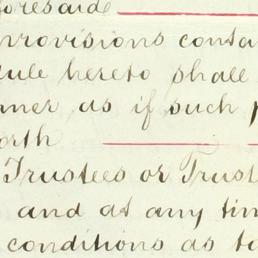 foresaid
provisions conta
dule hereto shall
nner, as if such p
orth
Trustees or Trust
and at any tim
conditions as to